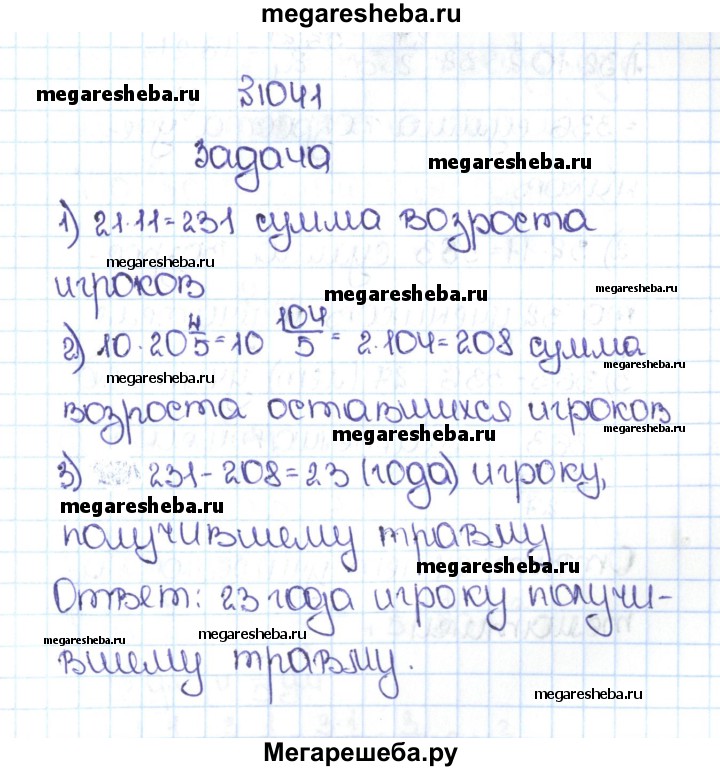 megaresheba.ru
megaresheba.ru
31041
задача
megaresheba.ru
1) 21·11=231 сумма возроста
megaresheba.ru
игроков
megaresheba.ru
megaresheba.ru
2) 10·20 4/5=10 104/5= 2·104=208 сумма
megaresheba.ru
возроста оставшихся игроков
megaresheba.ru
megaresheba.ru
3) 231-208=23 (года) игроку,
megaresheba.ru
получившему травму
megaresheba.ru
Ответ: 23 года игроку получи-
megaresheba.ru
megaresheba.ru
вшему травму.
megaresheba.ru
Мегарешеба.ру